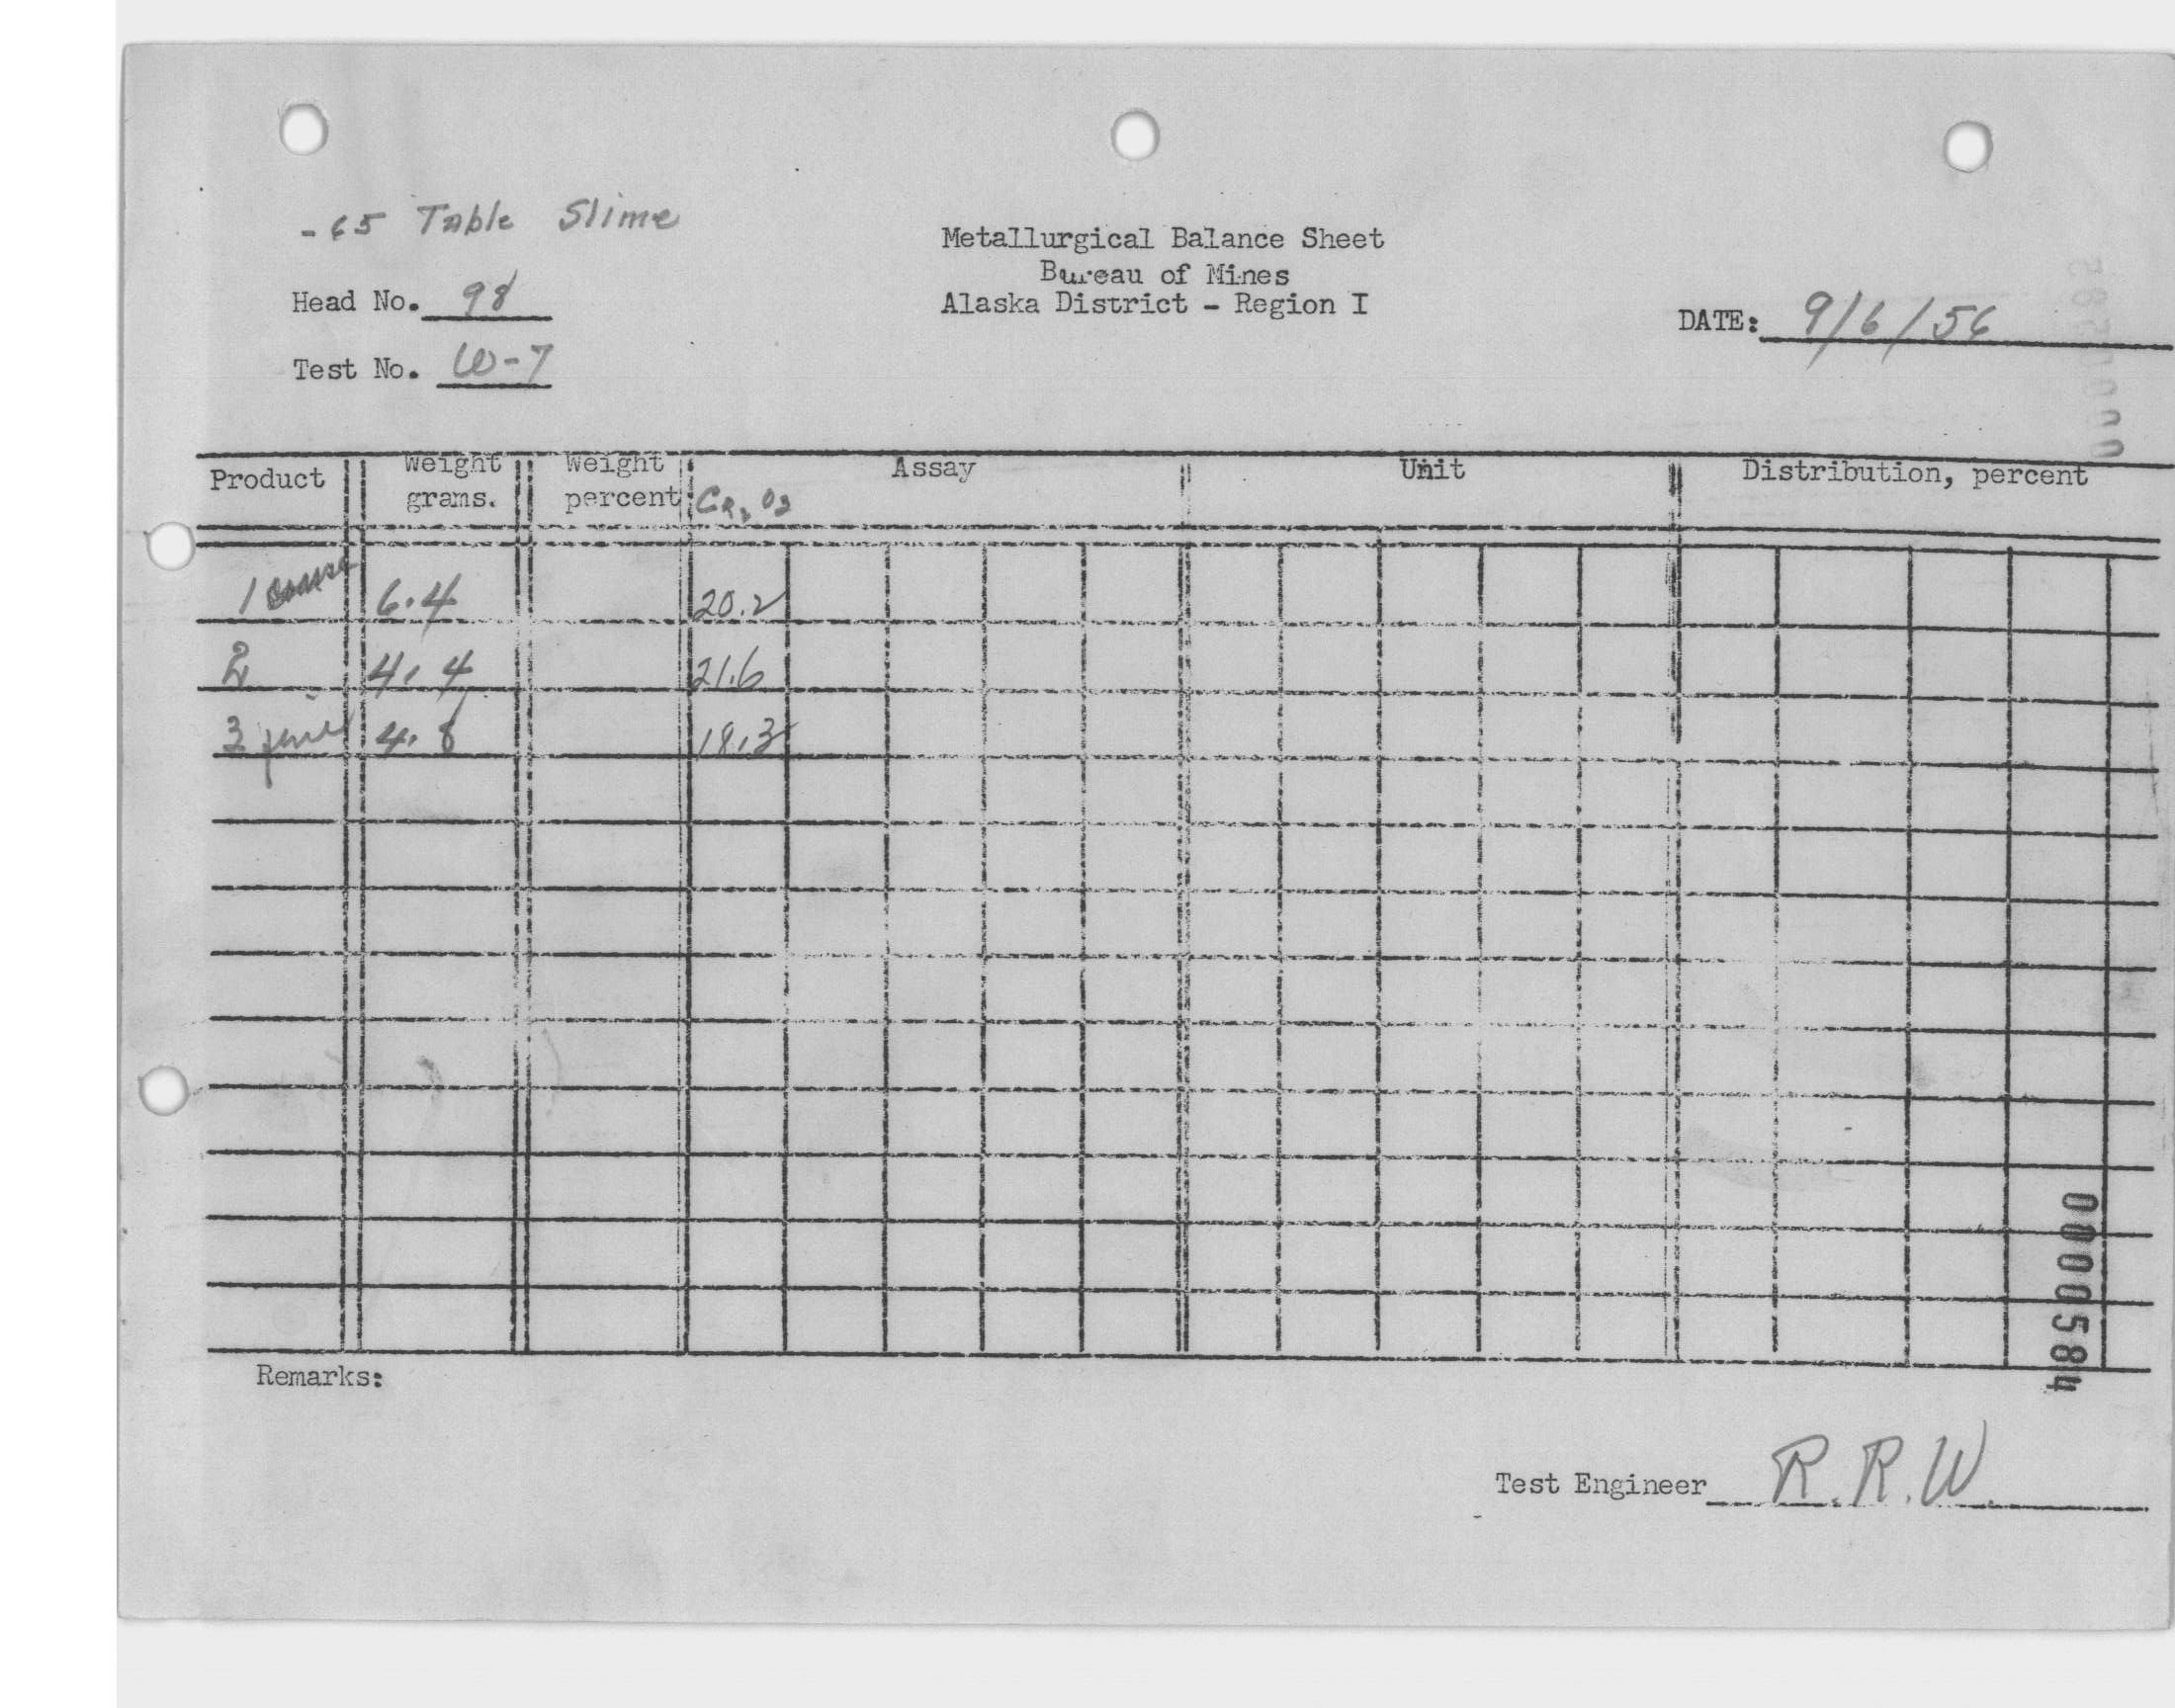 -65 Table Slime
Metallurgical Balance Sheet
Bureau of Mines
Alaska District - Region I
Head No. 98
DATE: 9/6/56
Test No. W-7
Product Weight grams. Weight percent Assay Unit Distribution, percent
Cr2 O3
1 coarse 6.4 20.2
2 4.4 21.6
3 fine 4.8 18.3
Remarks:
0000584
Test Engineer R.R.W.